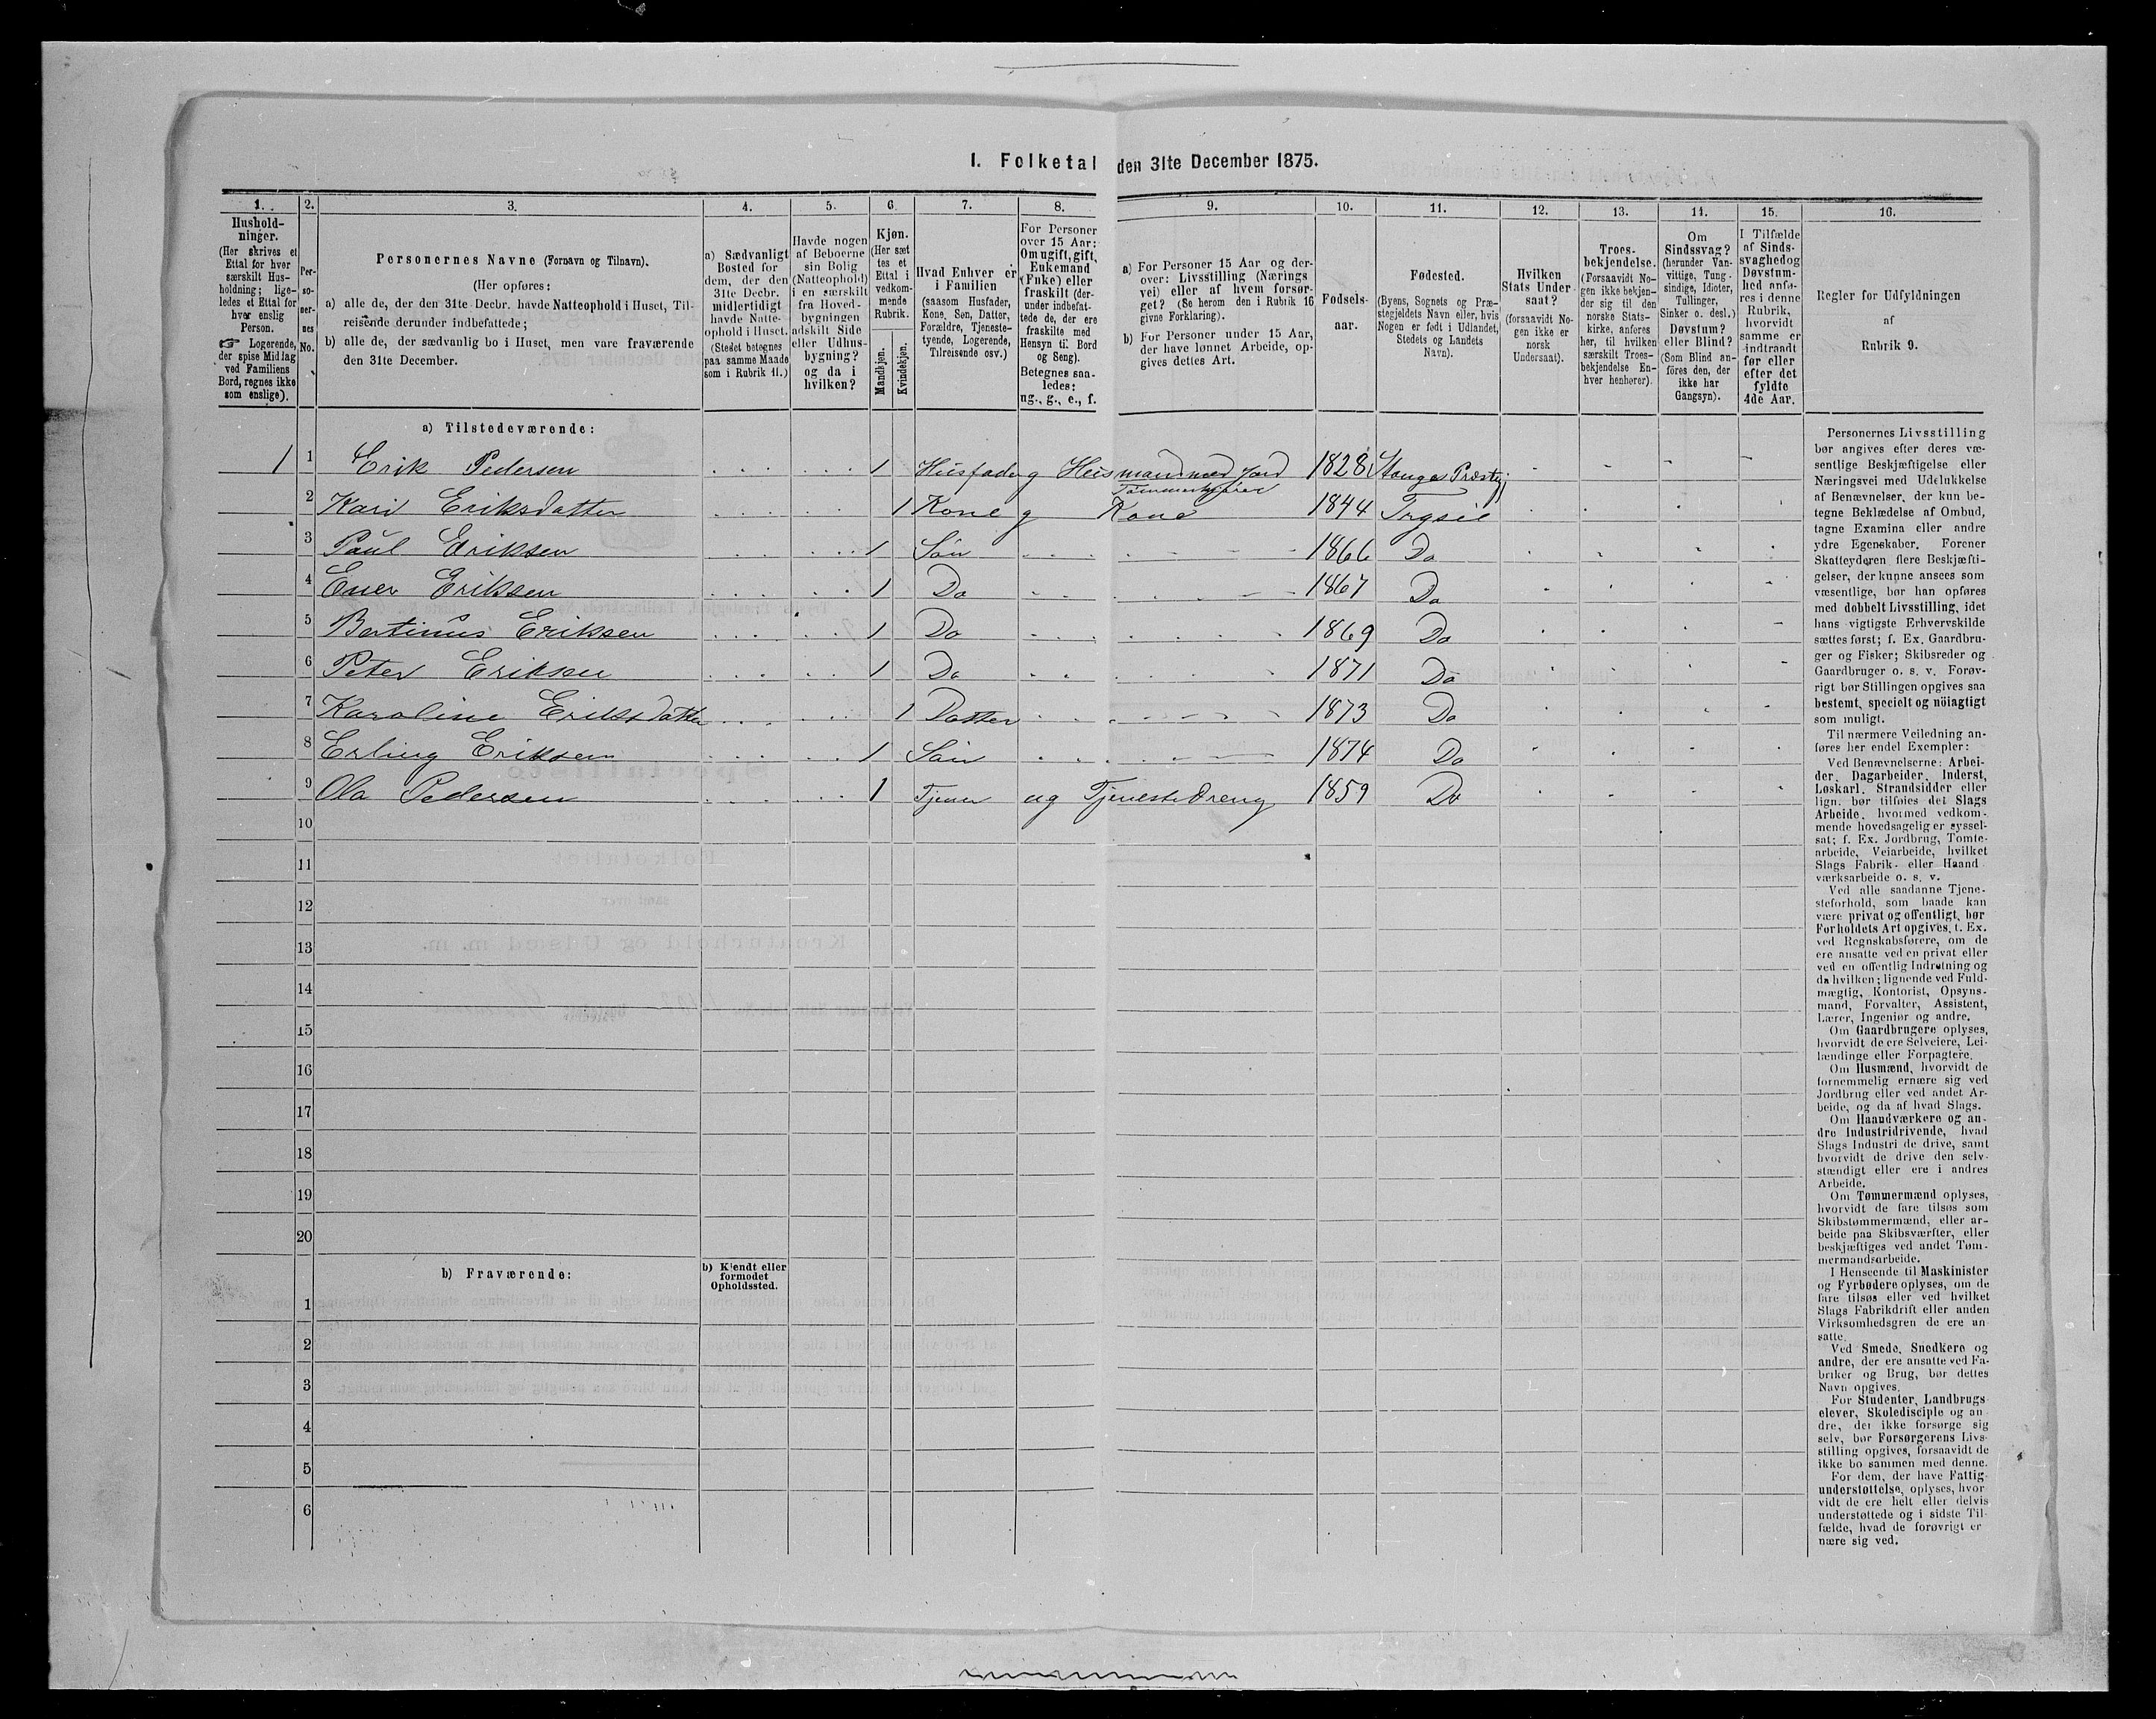 I. Folketal den 31te December 1875.
1. 2. 3. 4. 5. 6. 7. 8. 9. 10. 11. 12. 13. 14. 15. 16.
Hushold-
ninger.
(Her skrives et
Ettal for hver
særskilt Hus-
holdning; lige-
ledes et Ettal for
hver enslig
Person.
☞ Logerende,
der spise Middag
ved Familiens
Bord, regnes ikke
som enslige).
Per-
so-
ner-
nes
No.
Personernes Navne (Fornavn og Tilnavn).
(Her opføres:
a) alle de, der den 31te Decbr. havde Natteophold i Huset, Til-
reisende derunder indbefattede;
b) alle de, der sædvanlig bo i Huset, men vare fraværende
den 31te December.
a) Sædvanligt
Bosted for
dem, der den
31te Decbr.
midlertidigt
havde Natte-
ophold i Huset.
(Stedet betegnes
paa samme Maade
som i Rubrik 11.)
Havde nogen
af Beboerne
sin Bolig
(Natteophold)
i en særskilt
fra Hoved-
bygningen
adskilt Side
eller Udhus-
bygning?
og da i
hvilken?
Kjøn.
(Her sæt
tes et
Ettal i
vedkom-
mende
Rubrik.
Mandkjøn.
Kvindekjøn.
Hvad Enhver er
i Familien
(saasom Husfader,
Kone, Søn, Datter,
Forældre, Tjeneste-
tyende, Logerende,
Tilreisende osv.)
For Personer
over 15 Aar:
Om ugift, gift,
Enkemand
(Enke) eller
fraskilt (der-
under indbefat-
tede de, der ere
fraskilte med
Hensyn til Bord
og Seng).
Betegnes saa-
ledes:
ug., g., e., f.
a) For Personer 15 Aar og der-
over: Livsstilling (Nærings
vei) eller af hvem forsør-
get? (Se herom den i Rubrik 16
givne Forklaring).
b) For Personer under 15 Aar,
der have lønnet Arbeide, op-
gives dettes Art.
Fødsels-
aar.
Fødested.
(Byens, Sognets og Præ-
stegjeldets Navn eller, hvis
Nogen er født i Udlandet,
Stedets og Landets
Navn).
Hvilken
Stats Under-
saat?
(forsaavidt No-
gen ikke er
norsk
Undersaat).
Troes-
bekjendelse.
(Forsaavidt No-
gen ikke bekjen-
der sig til den
norske Stats-
kirke, anføres
her, til hvilken
særskilt Troes-
bekjendelse En-
hver henhører).
Om
Sindssvag?
(herunder Van-
vittige, Tung-
sindige, Idioter,
Tullinger,
Sinker o. desl.)
Døvstum?
eller Blind?
(Som Blind an-
föres den, der
ikke har
Gangsyn).
I Tilfælde
af Sinds-
svaghed og
Døvstum-
hed anfø-
res i denne
Rubrik,
hvorvidt
samme er
indtraadt
før eller
efter det
fyldte
4de Aar.
Regler for Udfyldningen
af
Rubrik 9.
a) Tilstedeværende:
1 1 Erik Pedersen 1 Husfader g Husmand med Jord 1828 Stange Præstgj
Tømmerkjører
2 Kari Eriksdatter 1 Kone g Kone 1844 Trysil
3 Paul Eriksen 1 Søn 1866 Do
4 Ener Eriksen 1 Do 1867 Do
5 Bertinus Eriksen 1 Do 1869 Do
6 Peter Eriksen 1 Do 1871 Do
7 Karoline Eriksdatter 1 Datter 1873 Do
8 Erling Eriksen 1 Søn 1874 Do
9 Ola Pedersen 1 Tjener ug Tjenestedreng 1859 Do
10
11
12
13
14
15
16
17
18
19
20
b) Fraværende:
b) Kjendt eller
formodet
Opholdssted.
1
2
3
4
5
6
Personernes Livsstilling
bør angives efter deres væ-
sentlige Beskjæftigelse eller
Næringsvei med Udelukkelse
af Benævnelser, der kun be-
tegne Beklædelse af Ombud,
tagne Examina eller andre
ydre Egenskaber. Forener
Skatteyderen flere Beskjæfti-
gelser, der kunne ansees som
væsentlige, bør han opføres
med dobbelt Livsstilling, idet
hans vigtigste Erhvervskilde
sættes først; f. Ex. Gaardbru-
ger og Fisker; Skibsreder og
Gaardbruger o. s. v. Forøv-
rigt bør Stillingen opgives saa
bestemt, specielt og nöiagtigt
som muligt.
Til nærmere Veiledning an-
føres her endel Exempler:
Ved Benævnelserne: Arbei-
der, Dagarbeider, Inderst,
Løskarl, Strandsidder eller
lign. bør tilføies det Slags
Arbeide, hvormed vedkom-
mende hovedsagelig er syssel-
sat; f. Ex. Jordbrug, Tomte-
arbeide, Veiarbeide, hvilket
Slags Fabrik- eller Haand-
værksarbeide o. s. v.
Ved alle saadanne Tjene-
steforhold, som baade kan
være privat og offentligt, bør
Forholdets Art opgives, f. Ex.
ved Regnskabsførere, om de
ere ansatte ved en privat eller
ved en offentlig Indretning og
da hvilken; lignende ved Fuld-
mægtig, Kontorist, Opsyns-
mand, Forvalter, Assistent,
Lærer, Ingeniør og andre.
Om Gaardbrugere oplyses,
hvorvidt de ere Selveiere, Lei-
lændinge eller Forpagtere.
Om Husmænd, hvorvidt de
fornemmelig ernære sig ved
Jordbrug eller ved andet Ar-
beide, og da af hvad Slags.
Om Haandværkere og an-
dre Industridrivende, hvad
Slags Industri de drive, samt
hvorvidt de drive den selv-
stændigt eller ere i andres
Arbeide.
Om Tømmermænd oplyses,
hvorvidt de fare tilsøs som
Skibstømmermænd, eller ar-
beide paa Skibsværfter, eller
beskjæftiges ved andet Tøm-
mermandsarbeide.
I Henseende til Maskinister
og Fyrbødere oplyses, om de
fare tilsøs eller ved hvilket
Slags Fabrikdrift eller anden
Virksomhedsgren de ere an
satte.
Ved Smede, Snedkere og
andre, der ere ansatte ved Fa-
briker og Brug, bør dettes
Navn opgives.
For Studenter, Landbrugs
elever, Skoledisciple og an
dre, der ikke forsørge sig
selv, bør Forsørgerens Livs-
stilling opgives, forsaavidt de
ikke bo sammen med denne.
For dem, der have Fattig-
understøttelse, oplyses, hvor-
vidt de ere helt eller delvis
understøttede og i sidste Til-
fælde, hvad de forøvrigt er
nære sig ved.